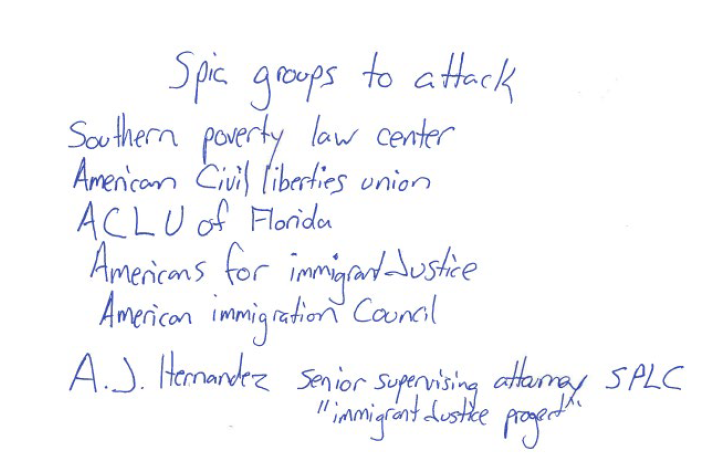 Spic groups to attack
Southern poverty law center
American Civil liberties union
ACLU of Florida
Americans for immigrant Justice
American immigration Council
A.J. Hernandez senior supervising attorney SPLC
"immigrant Justice progect"